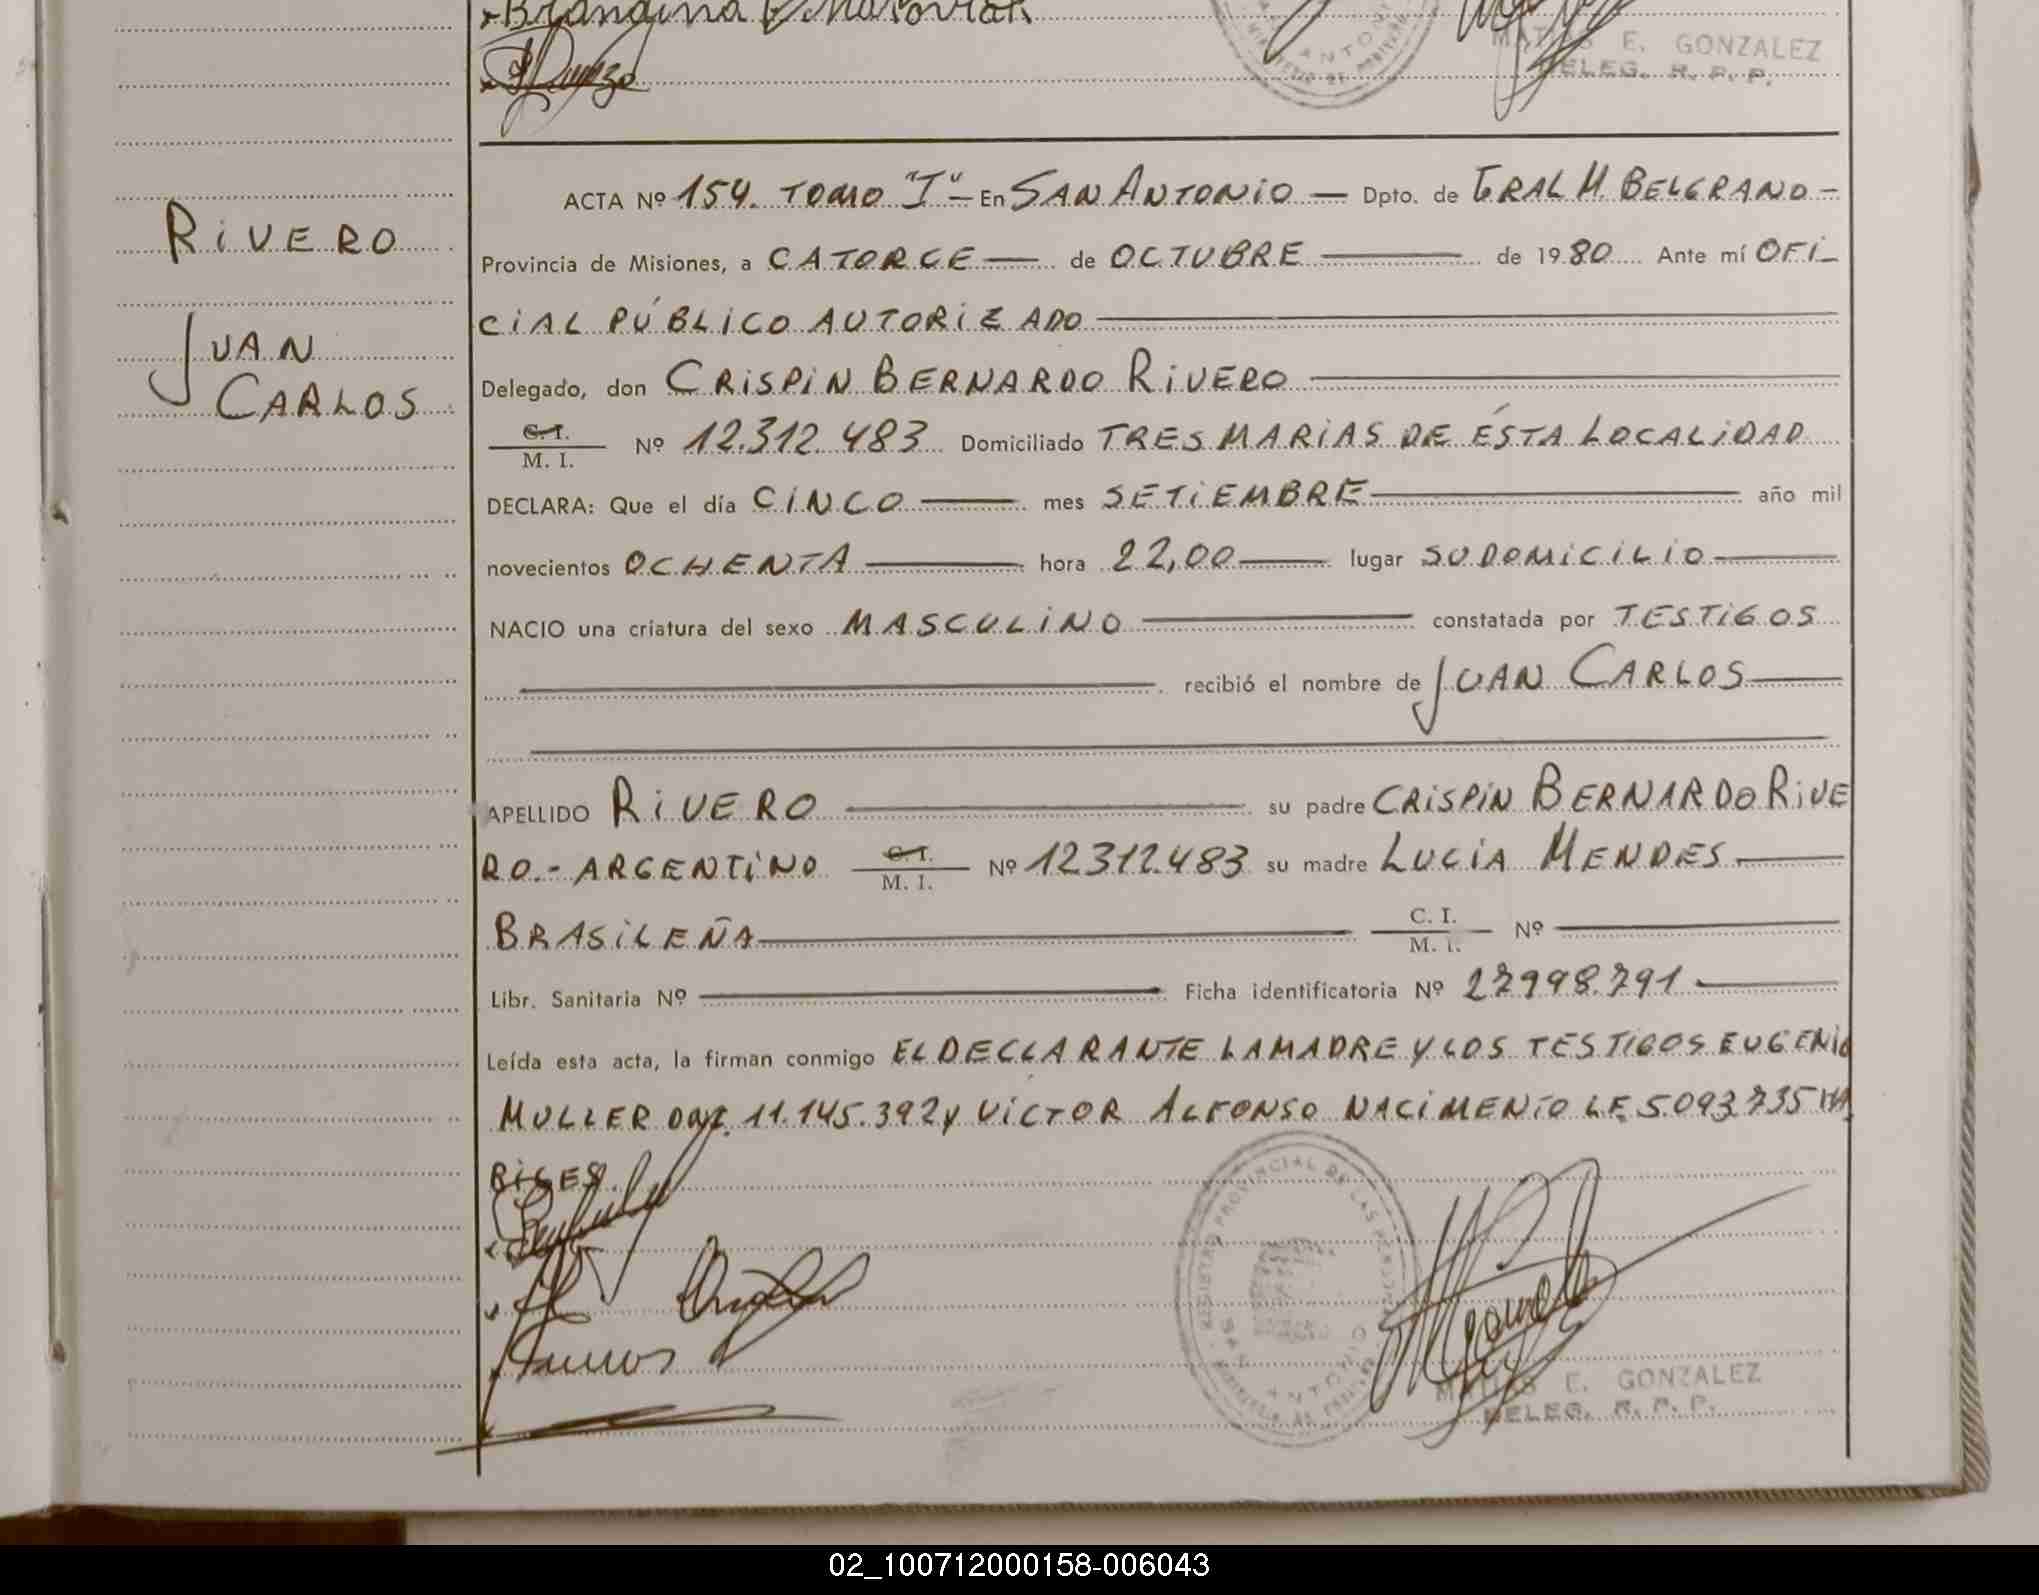 MATIAS E. GONZALEZ
DELEG. R. P. P.
RIVERO
JUAN
CARLOS
ACTA Nº 154. TOMO "I" — En SAN ANTONIO — Dpto. de GRAL M. BELGRANO —
Provincia de Misiones, a CATORCE — de OCTUBRE — de 1980 Ante mí OFI_
CIAL PÚBLICO AUTORIZADO —
Delegado, don CRISPIN BERNARDO RIVERO —
C. I.
M. I. Nº 12.312.483 Domiciliado TRES MARIAS DE ÉSTA LOCALIDAD
DECLARA: Que el día CINCO — mes SETIEMBRE — año mil
novecientos OCHENTA — hora 22,00 — lugar SU DOMICILIO —
NACIO una criatura del sexo MASCULINO — constatada por TESTIGOS
— recibió el nombre de JUAN CARLOS —
APELLIDO RIVERO — su padre CRISPIN BERNARDO RIVE
RO.- ARGENTINO C. I. M. I. Nº 12312.483 su madre LUCÍA MENDES —
BRASILEÑA — C. I. M. I. Nº —
Libr. Sanitaria Nº — Ficha identificatoria Nº 27998.791 —
Leída esta acta, la firman conmigo EL DECLARANTE LA MADRE Y LOS TESTIGOS EUGENIO
MULLER DNI. 11.145.392 y VÍCTOR ALFONSO NACIMENTO LE. 5.093.735 HA
BILES.
REGISTRO PROVINCIAL DE LAS PERSONAS
SAN ANTONIO
MATIAS E. GONZALEZ
DELEG. R. P. P.
02_100712000158-006043